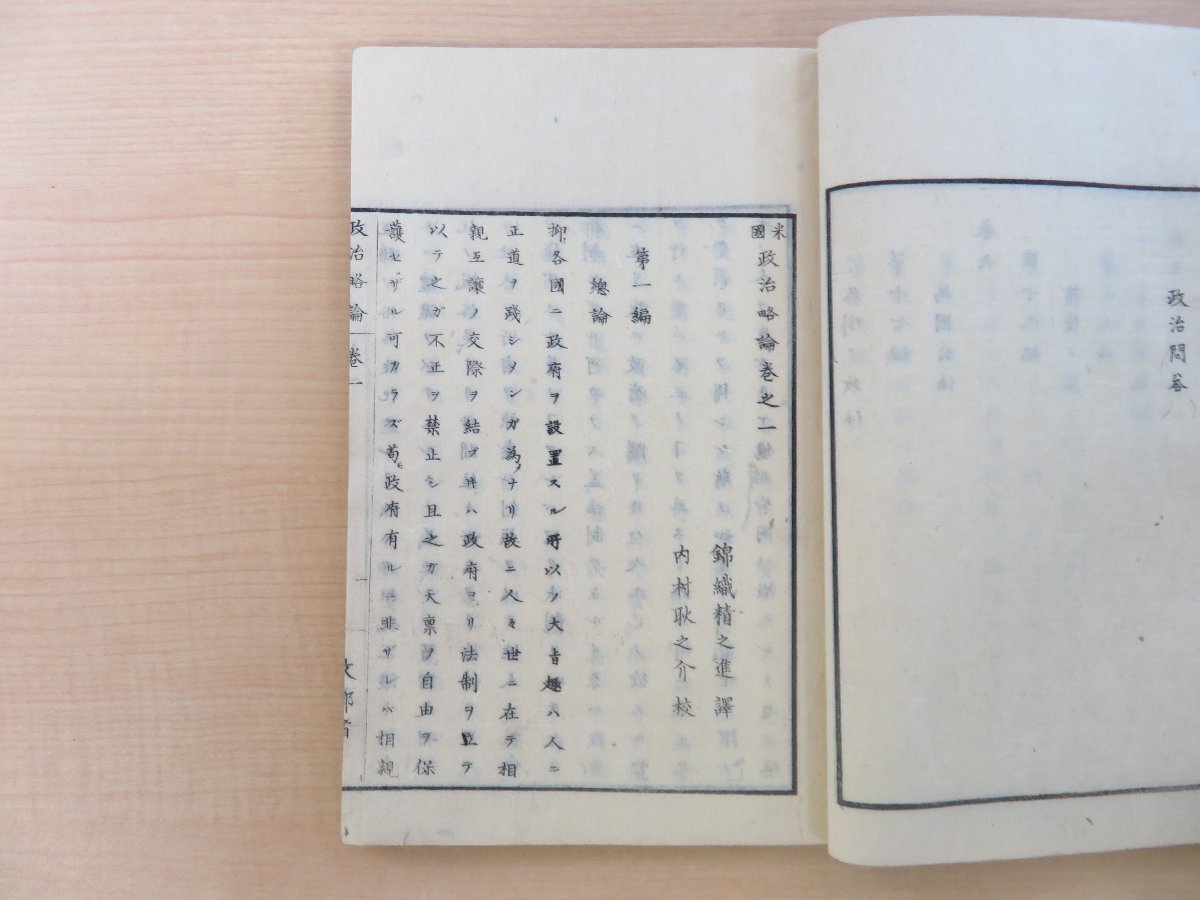 政治問答
米國政治略論卷之一
錦織精之進譯
内村耿之介校
第一編
總論
抑各國ニ政府ヲ設置スル所以ノ大旨趣ハ人ニ
正道ヲ踐シメンガ為メナリ故ニ人々世ニ在テ相
親互讓ノ交際ヲ結ブ𪜈ハ政府ヨリ法制ヲ立テ
以テ之ガ不正ヲ禁止シ且之ガ天禀ノ自由ヲ保
護セザル可カラズ苟モ政府有ルニ非ザレバ相親
政治略論 卷一 文部省